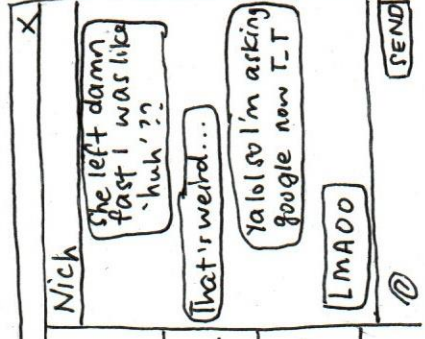 X
Nich
She left damn
fast I was like
'huh'??
That's weird...
Ya lol so I'm asking
google now T_T
LMAOO
SEND